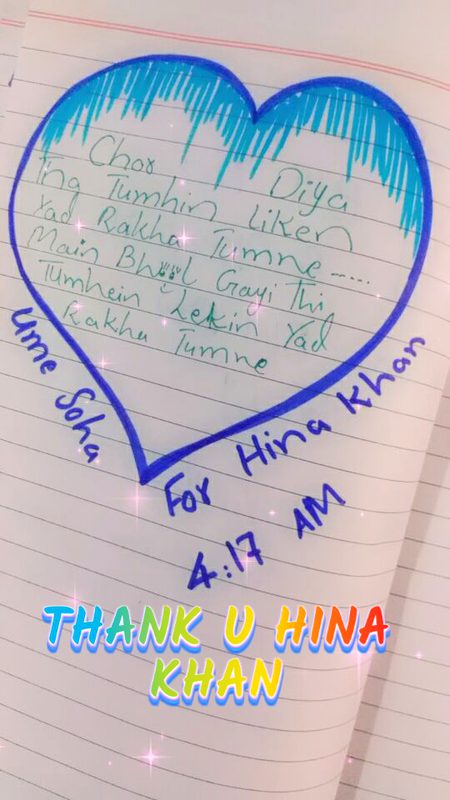 Chor Diya
Tng Tumhin Liken
Yad Rakha Tumne-----
Main Bhool Gayi Thi
Tumhein Lekin Yad
Rakha Tumne
Ume Soha
For Hina Khan
4:17 AM
THANK U HINA
KHAN